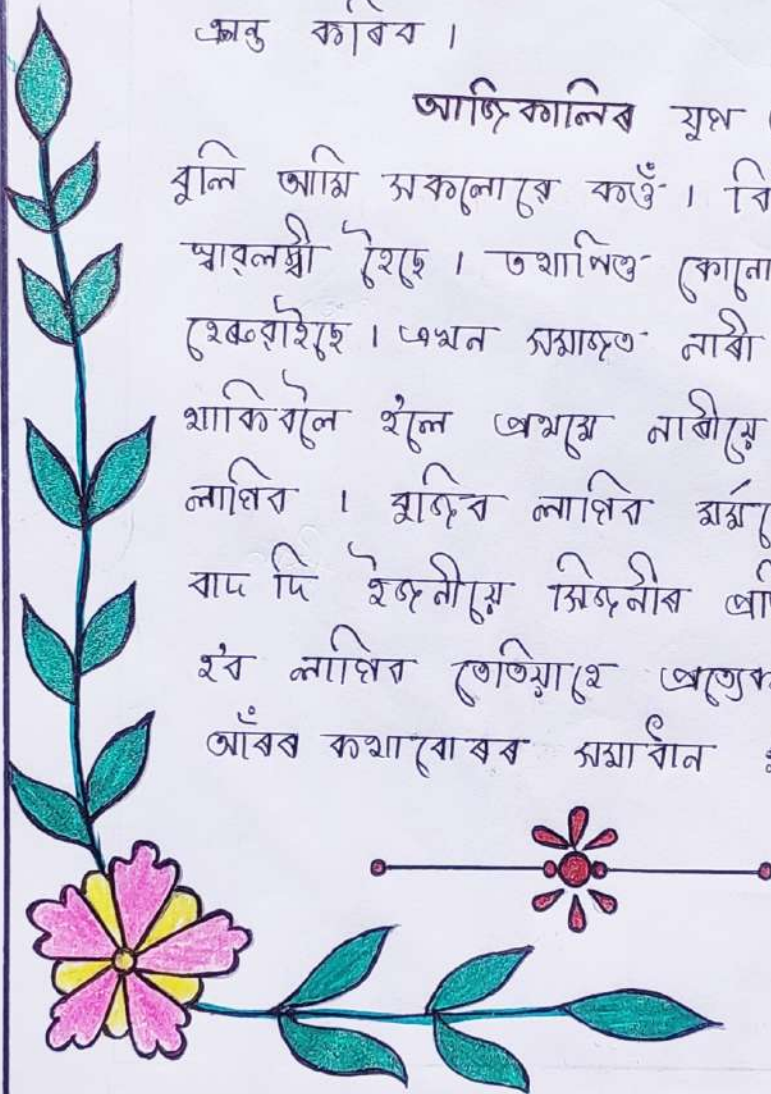 ক্লান্ত কৰিব ।
আজিকালিৰ যুগ
বুলি আমি সকলোৱে কওঁ । বি
স্বাৱলম্বী হৈছে । তথাপিও কোনো
হেৰুৱাইছে । এখন সমাজত নাৰী
থাকিবলৈ হ'লে প্ৰথমে নাৰীয়ে
লাগিব । বুজিব লাগিব মৰ্ম
বাদ দি ইজনীয়ে সিজনীৰ প্ৰতি
হ'ব লাগিব তেতিয়াহে প্ৰত্যেক
আঁৰৰ কথাবোৰৰ সমাধান